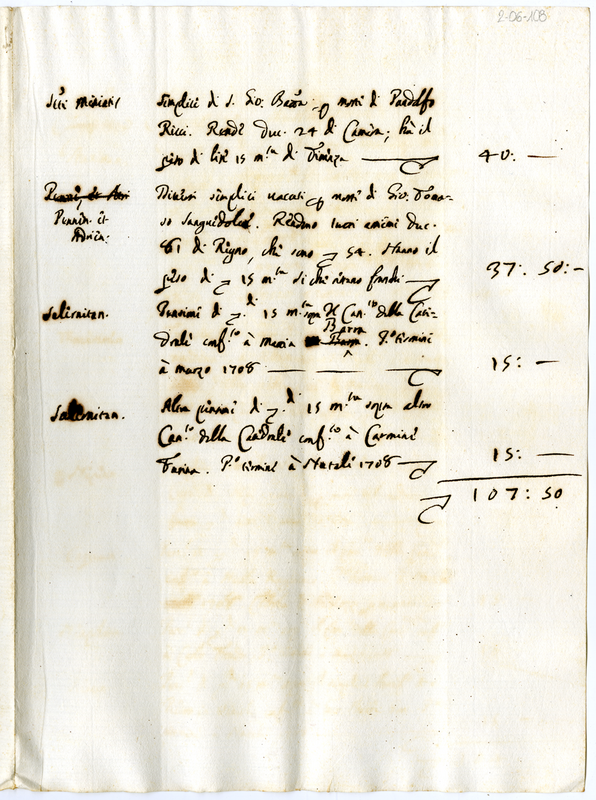 2-06-108
Sti Miniati
Semplici di S. Gio: Batta p morte di Pandolfo
Ricci. Rende duc. 24 di Camera; ha il
peso di lire 15 m.ta di Firenze
40: —
Pennen. et Atri
Pennen. et
Adrien:
Diversi semplici vacati p morte di Gio: Toma-
so Sanguedolce. Rendono duc.
81 di Regno, che sono 54. Hanno il
peso di 15 m.ta si che restano franchi
37: 50: —
Salernitan.
Pensione di 15 m.ta sopra Can.to della Cate-
drale conf.to à Mattia
Barra
P.o termine
à marzo 1708
15: —
Salernitan.
Altra pensione di 15 m.ta sopra altro
Can.to della Catedrale conf.to à Carmine
Farina. P.o termine à Natale 1708
15: —
107: 50